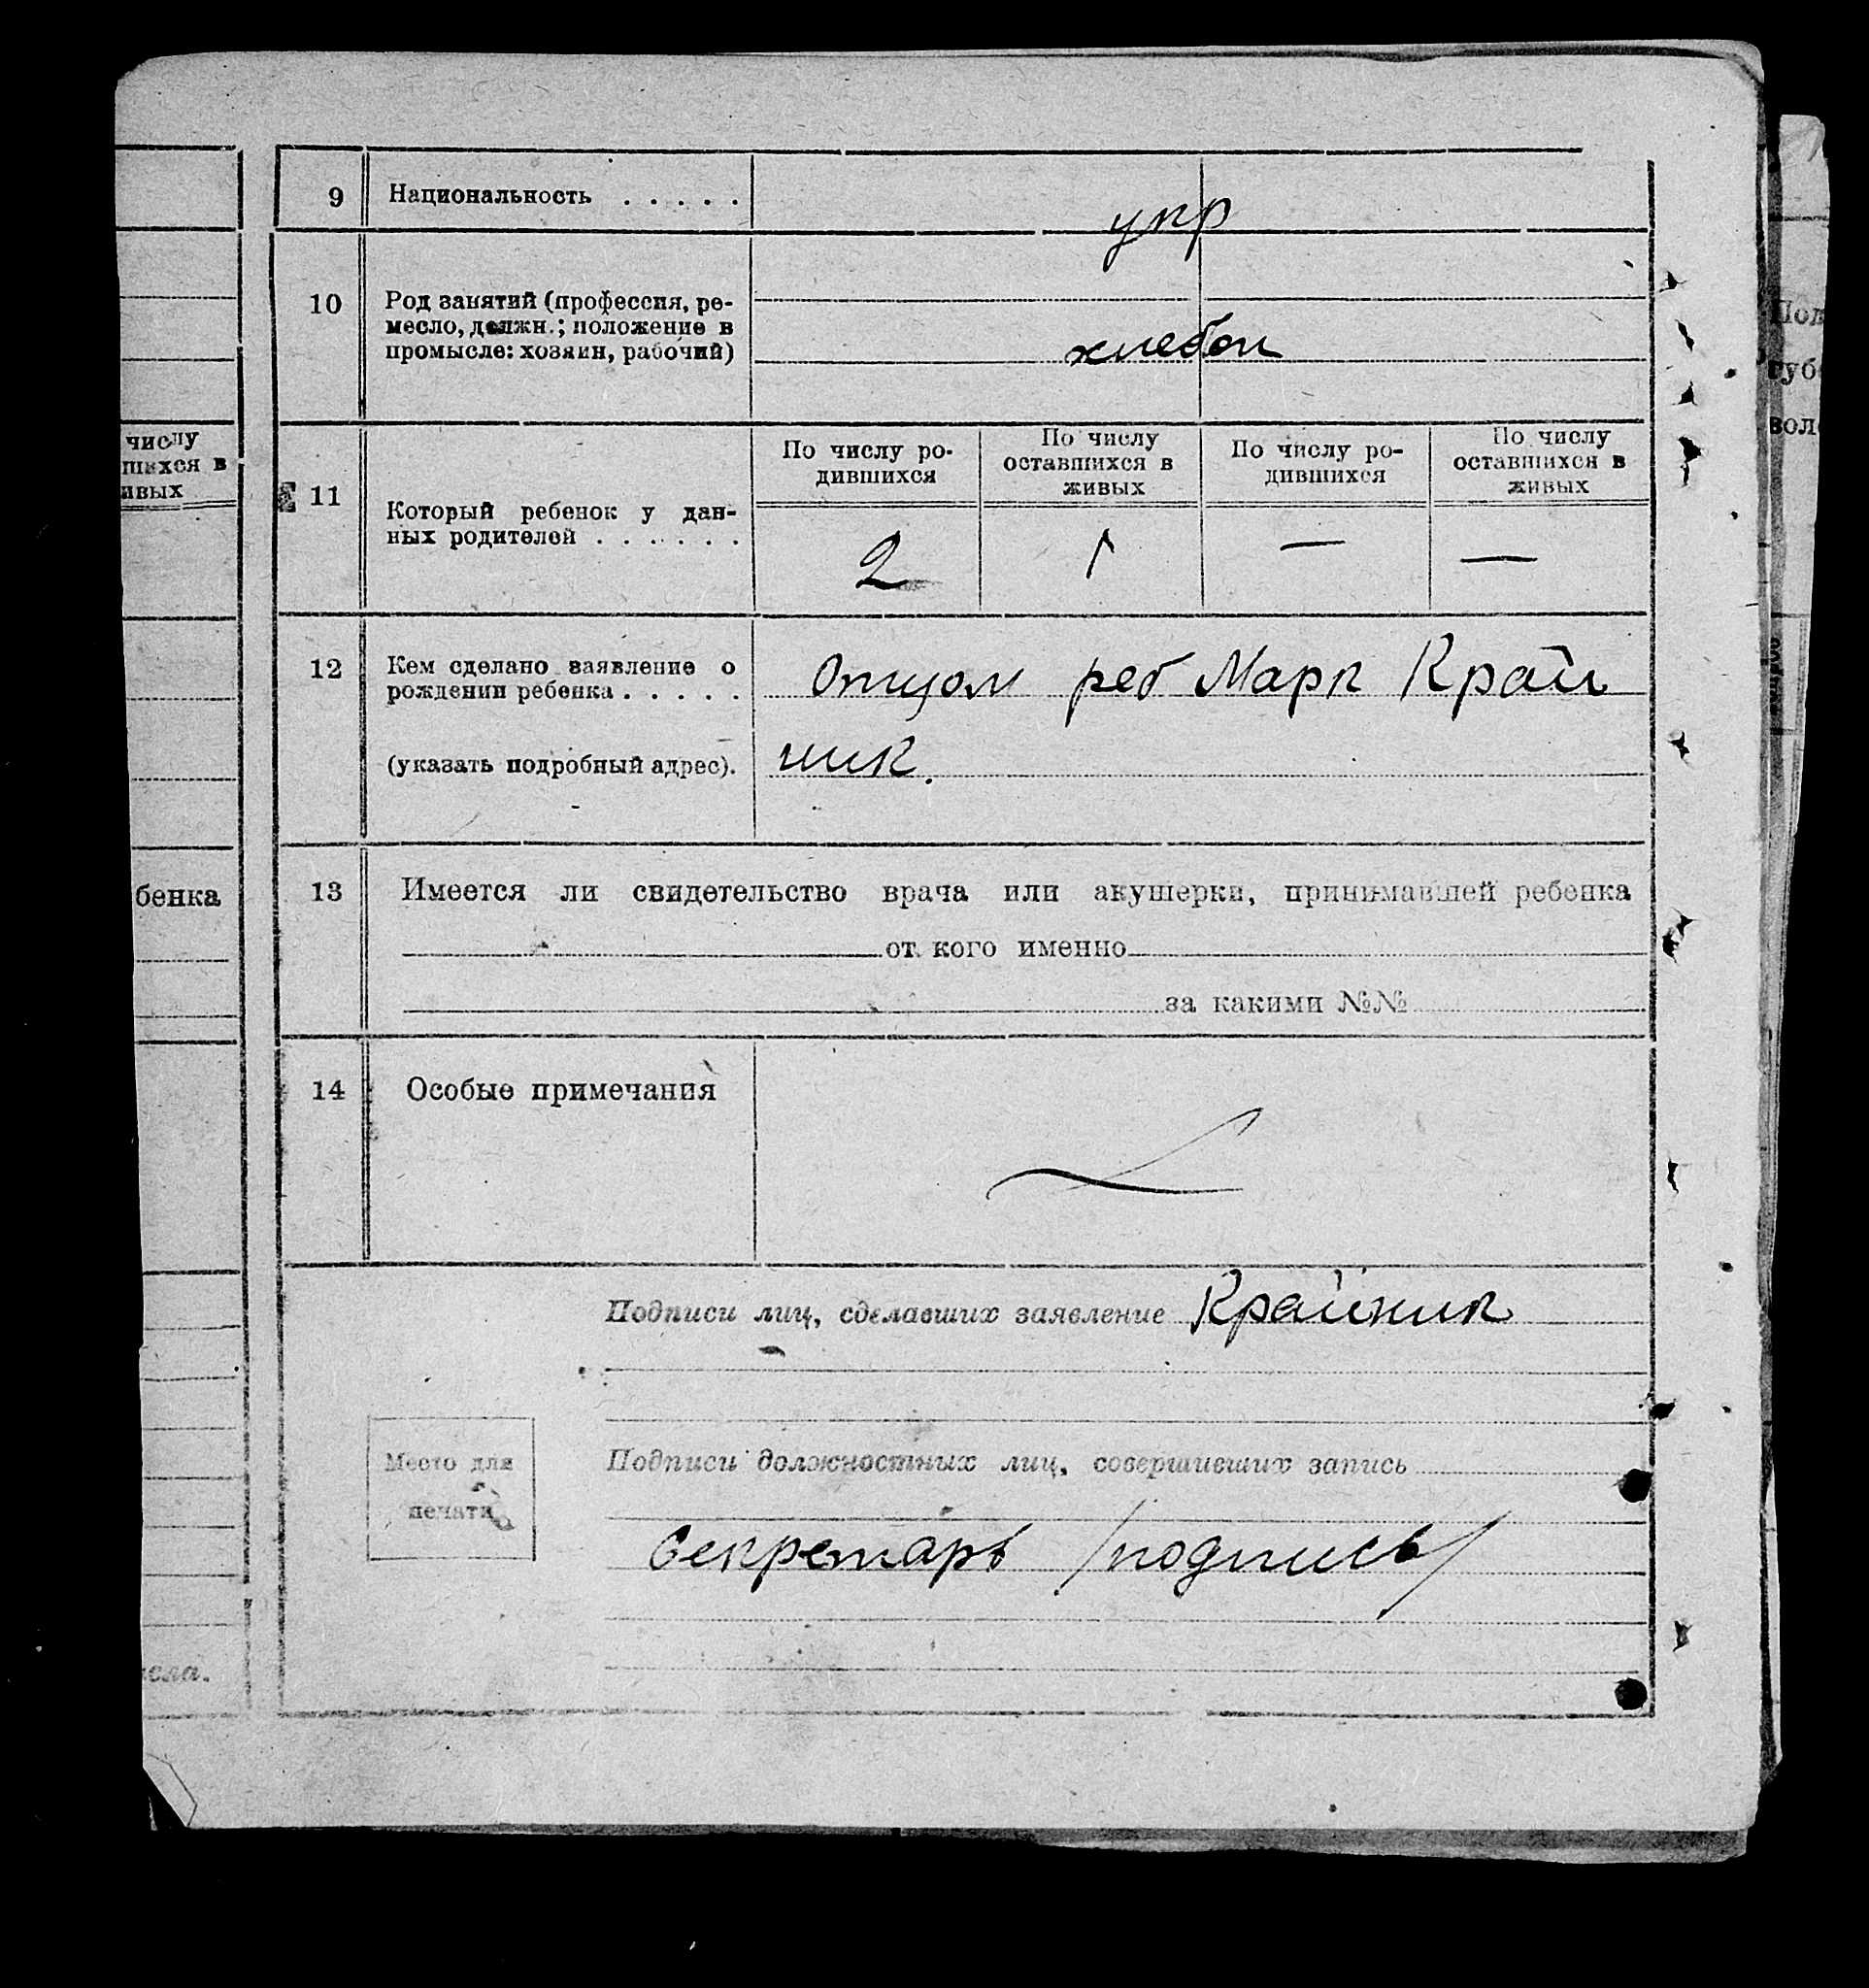 9 Национальность . . . . .
укр
10 Род занятий (профессия, ре-
месло, должн.; положение в
промысле: хозяин, рабочий)
хлебоп
числу
шихся в
ивых
11 Который ребенок у дан-
ных родителей . . . . . .
По числу ро-
дившихся
По числу
оставшихся в
живых
По числу ро-
дившихся
По числу
оставшихся в
живых
2 1 — —
12 Кем сделано заявление о
рождении ребенка . . . . .
(указать подробный адрес).
Отцом реб Марк Край
ник.
бенка
13 Имеется ли свидетельство врача или акушерки, принимавшей ребенка
от кого именно
за какими №№
14 Особые примечания
Подписи лиц, сделавших заявление Крайник
Место для
печати
Подписи должностных лиц, совершивших запись
Секретарь /подпись/
исла.
Под
губ
вол